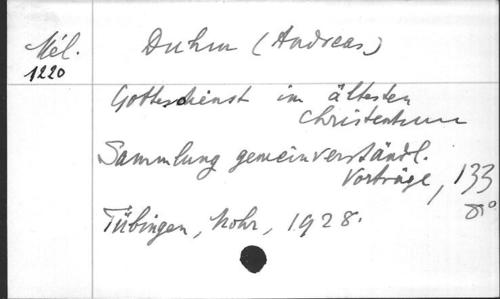 Mél.
1220
Duhm (Andreas)
Gottesdienst im ältesten
Christentum
Sammlung gemeinverständl.
Vorträge, 133
8°
Tübingen, Mohr, 1928.